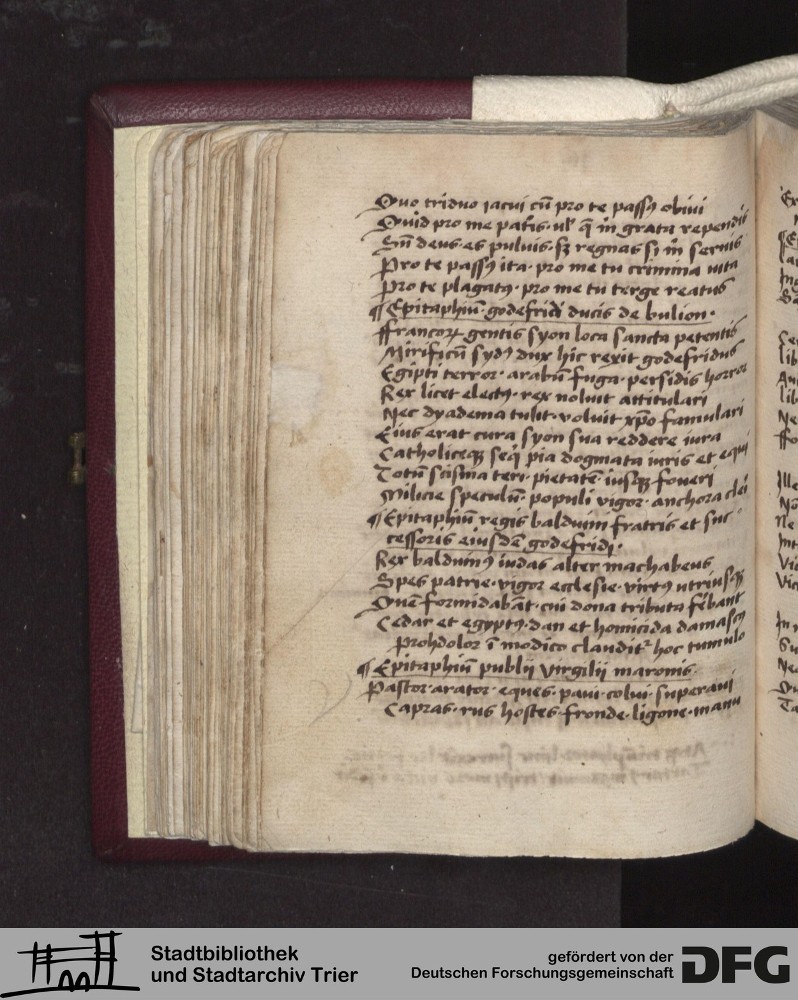 Quo triduo iacui cū pro te passꝰ obiui
Quid pro me pateris ul' q̄ in grata rependis
Sū deus es puluis sꝫ regnas si in seruis
Pro te passꝰ ita pro me tu crimina uita
Pro te plagatꝰ pro me tu terge reatus
¶ Epitaphiū godefridi ducis de bulion
Francorꝝ gentis syon loca sancta petentis
Mirificū sydꝰ dux hic rexit godefridus
Egipti terror arabū fuga persidis horror
Rex licet electꝰ rex noluit attitulari
Nec dyadema tulit voluit xp̄o famulari
Eius erat cura syon sua reddere iura
Catholiceqꝫ seq̄ pia dogmata iuris et equi
Totū scisma teri pietatē iusqꝫ foueri
Milicie speculū populi vigor anchora cleri
¶ Epitaphiū regis balduini fratris et suc
cessoris eiusdē godefridi
Rex balduinꝰ iudas alter machabeus
Spes patrie vigor ecclesie virtꝰ utriusqꝫ
Quē formidabāt cui dona tributa ferebant
Cedar et egyptꝰ dan et homicida damascꝰ
Prohdolor ī modico claudit² hoc tumulo
¶ Epitaphiū publii virgilii maronis
Pastor arator eques paui colui superaui
Capras rus hostes fronde ligone manu
Stadtbibliothek
und Stadtarchiv Trier
gefördert von der
Deutschen Forschungsgemeinschaft
DFG